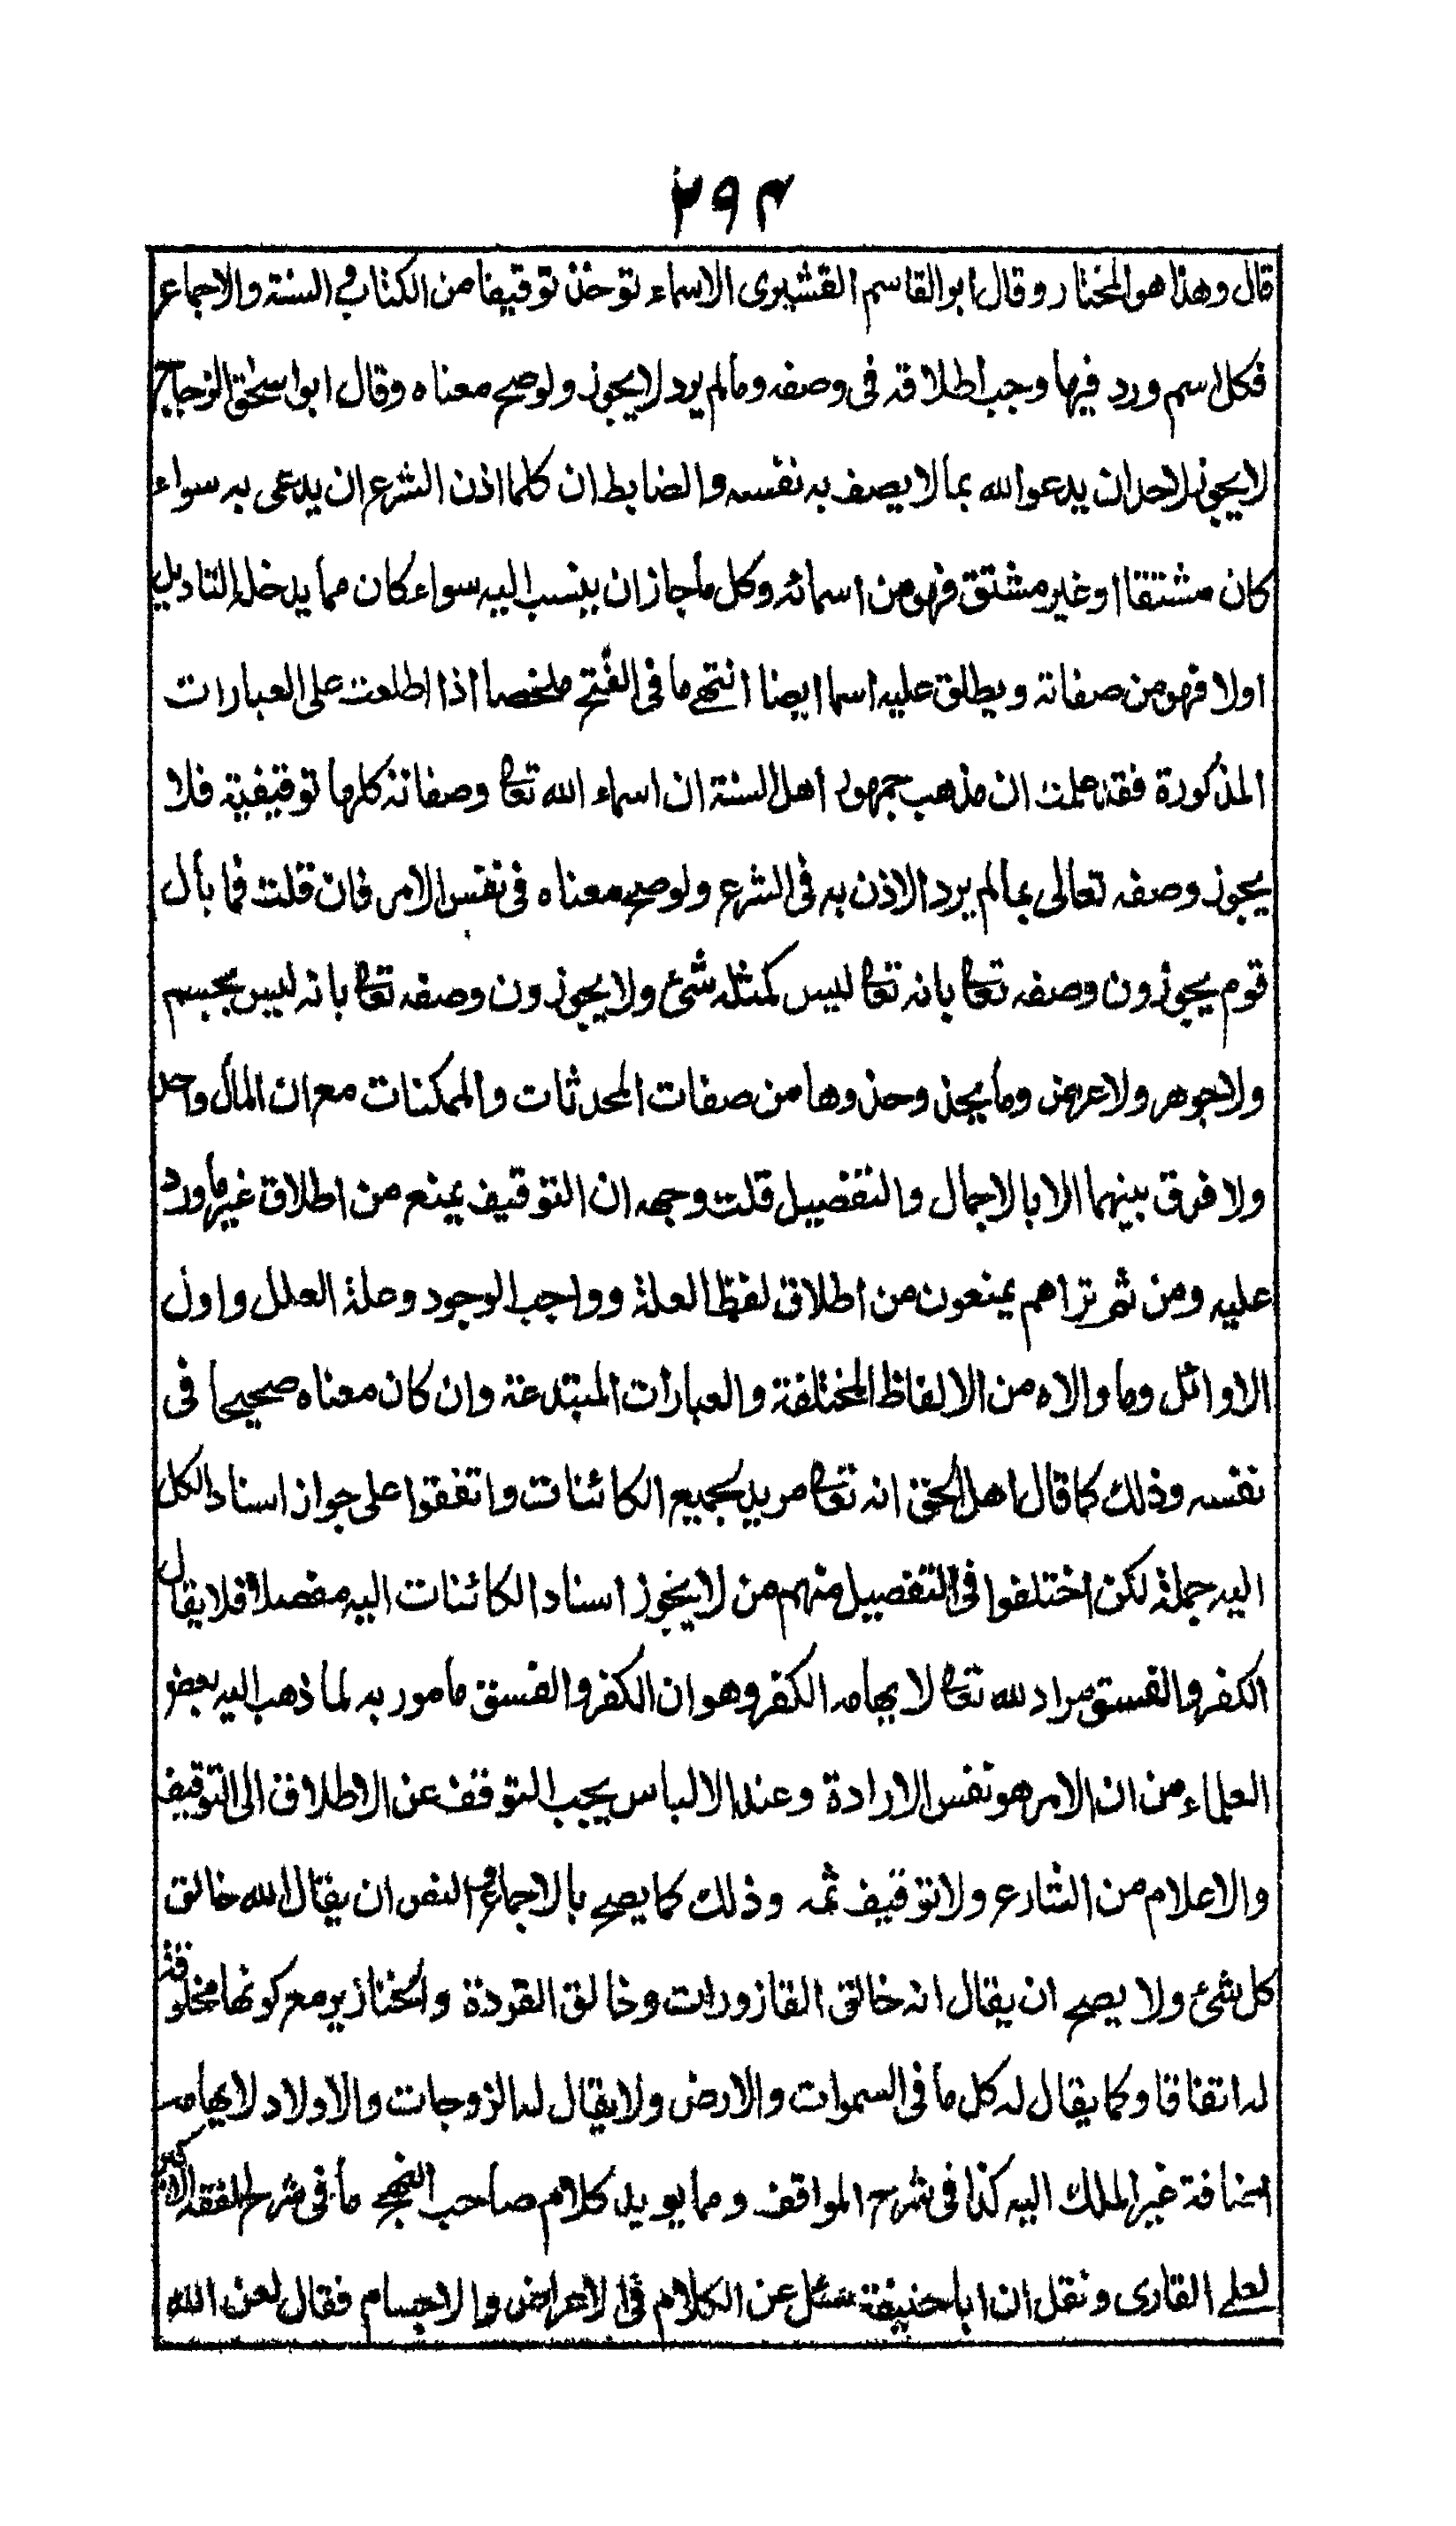 ۲۹۴
قال وهذا هو المختار وقال ابو القاسم القشيرى الاسماء توخذ توقيفا من الكتاب و السنة والاجماع
فكل اسم ورد فيها وجب اطلاقه فى وصفه وما لم يرد لا يجوز ولو صح معناه وقال ابو اسحٰق الزجاج
لا يجوز لاحد ان يدعو الله بما لا يصف به نفسه والضابط ان كلما اذن الشرع ان يدعى به سواء
كان مشتقا او غير مشتق فهو من اسمائه وكل ما جاز ان ينسب اليه سواء كان مما يدخله التاويل
اولا فهو من صفاته ويطلق عليه اسما ايضا انتهے ما فى الفتح ملخصا اذا اطلعت على العبارات
المذكورة فقد علمت ان مذهب جمهور اهل السنة ان اسماء الله تعا وصفاته كلها توقيفية فلا
يجوز وصفه تعالى بما لم يرد الاذن به فى الشرع ولو صح معناه فى نفس الامر فان قلت فما بال
قوم يجوزون وصفه تعا بانه تعا ليس كمثله شئ ولا يجوزون وصفه تعا بانه ليس بجسم
ولا جوهر ولا عرض وما يحذ وحذوها من صفات المحدثات والممكنات مع ان المأل واحد
ولا فرق بينهما الا بالاجمال والتفصيل قلت وجهه ان التوقيف يمنع من اطلاق غير ما ورد
عليه ومن ثم تراهم يمنعون من اطلاق لفظ العلة وواجب الوجود وعلة العلل واول
الاوائل وما والاه من الالفاظ المختلفة والعبارات المبتدعة وان كان معناه صحيحا فى
نفسه وذلك كما قال اهل الحق انه تعا مريد لجميع الكائنات واتفقوا على جواز اسناد الكل
اليه جملة لكن اختلفوا فى التفصيل منهم من لا يجوز اسناد الكائنات اليه مفصلا فلا يقال
الكفر والفسق مراد لله تعا لايهامه الكفر وهو ان الكفر والفسق مامور به لما ذهب اليه بعض
العلماء من ان الامر هو نفس الارادة وعند الالباس يجب التوقف عن الاطلاق الى التوقيف
والاعلام من الشارع ولا توقيف ثمه وذلك كما يصح بالاجماع و النص ان يقال الله خالق
كل شئ ولا يصح ان يقال انه خالق القازورات وخالق القردة والخنازير مع كونها مخلوقة
له اتفاقا وكما يقال له كل ما فى السموات والارض ولا يقال له الزوجات والاولاد لايهامه
اضافة غير الملك اليه كذا فى شرح المواقف ومما يويد كلام صاحب النهج ما فى شرح الفقه الاكبر
لعلے القارى ونقل ان ابا حنيفة سئل عن الكلام فى الاعراض والاجسام فقال لعن الله